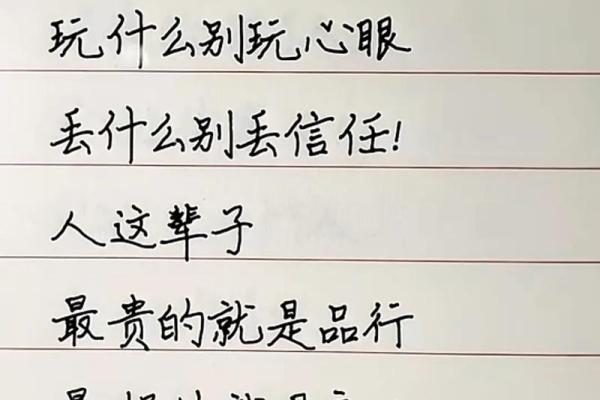 玩什么别玩心眼
丢什么别丢信任!
人这辈子
最贵的就是品行